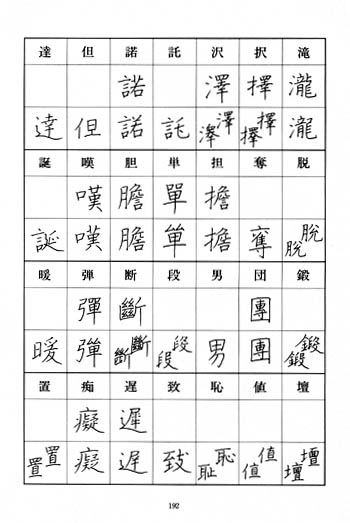 達 但 諾 託 沢 択 滝
諾 澤 擇 瀧
達 但 諾 託 澤 澤 擇 擇 瀧
誕 嘆 胆 単 担 奪 脱
嘆 膽 單 擔
誕 嘆 膽 単 擔 奪 脫 脫
暖 弾 断 段 男 団 鍛
彈 斷 團
暖 彈 斷 斷 段 段 男 團 鍛 鍛
置 痴 遅 致 恥 値 壇
癡 遲
置 置 癡 遲 致 恥 恥 值 值 壇 壇
192